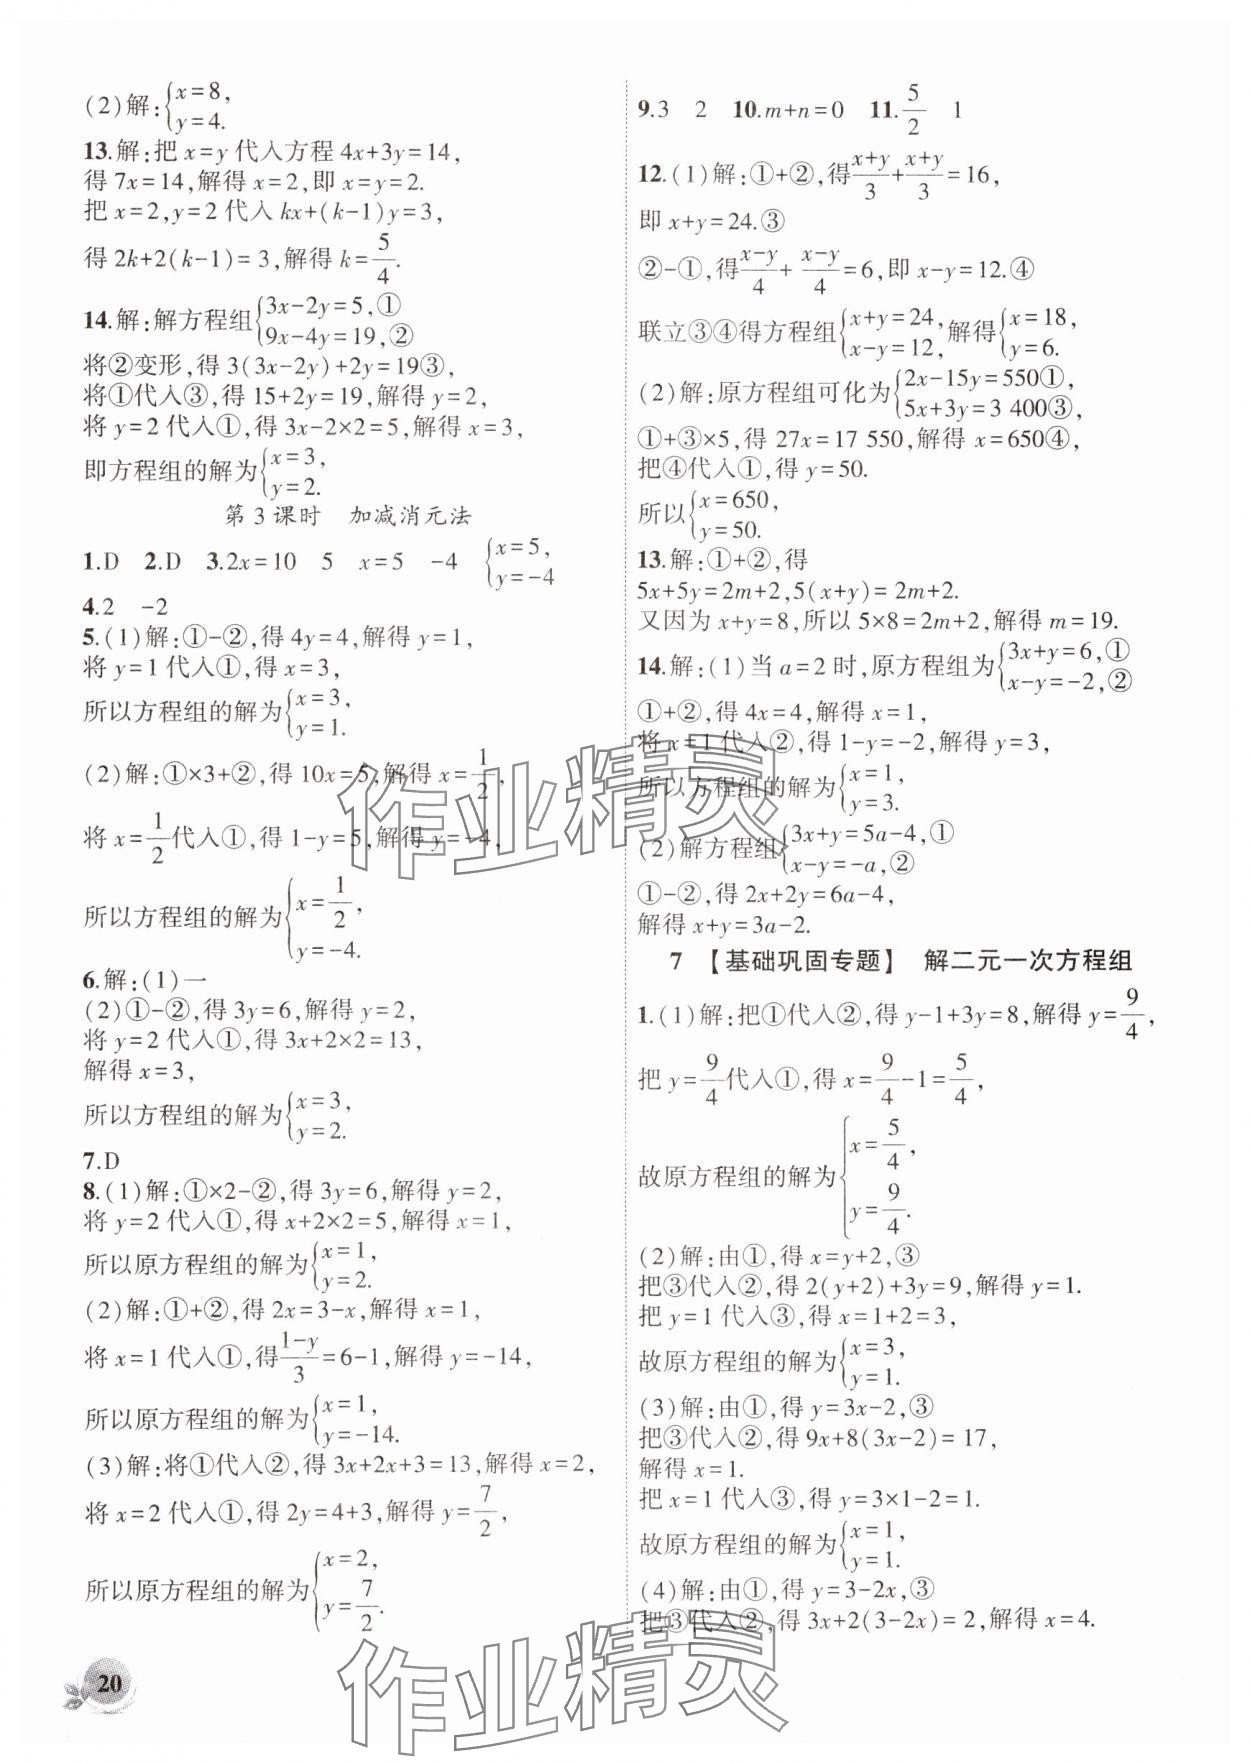 (2)解:{x=8,
y=4.
13.解:把 x=y 代入方程 4x+3y=14,
得 7x=14,解得 x=2,即 x=y=2.
把 x=2,y=2 代入 kx+(k-1)y=3,
得 2k+2(k-1)=3,解得 k=5/4.
14.解:解方程组{3x-2y=5,①
9x-4y=19,②
将②变形,得 3(3x-2y)+2y=19③,
将①代入③,得 15+2y=19,解得 y=2,
将 y=2 代入①,得 3x-2×2=5,解得 x=3,
即方程组的解为{x=3,
y=2.
第 3 课时 加减消元法
1.D 2.D 3.2x=10 5 x=5 -4 {x=5,
y=-4
4.2 -2
5.(1)解:①-②,得 4y=4,解得 y=1,
将 y=1 代入①,得 x=3,
所以方程组的解为{x=3,
y=1.
(2)解:①×3+②,得 10x=5,解得 x=1/2,
将 x=1/2代入①,得 1-y=5,解得 y=-4,
所以方程组的解为{x=1/2,
y=-4.
6.解:(1)一
(2)①-②,得 3y=6,解得 y=2,
将 y=2 代入①,得 3x+2×2=13,
解得 x=3,
所以方程组的解为{x=3,
y=2.
7.D
8.(1)解:①×2-②,得 3y=6,解得 y=2,
将 y=2 代入①,得 x+2×2=5,解得 x=1,
所以原方程组的解为{x=1,
y=2.
(2)解:①+②,得 2x=3-x,解得 x=1,
将 x=1 代入①,得(1-y)/3=6-1,解得 y=-14,
所以原方程组的解为{x=1,
y=-14.
(3)解:将①代入②,得 3x+2x+3=13,解得 x=2,
将 x=2 代入①,得 2y=4+3,解得 y=7/2,
所以原方程组的解为{x=2,
y=7/2.
20
9.3 2 10.m+n=0 11.5/2 1
12.(1)解:①+②,得(x+y)/3+(x+y)/3=16,
即 x+y=24.③
②-①,得(x-y)/4+(x-y)/4=6,即 x-y=12.④
联立③④得方程组{x+y=24,
x-y=12,解得{x=18,
y=6.
(2)解:原方程组可化为{2x-15y=550①,
5x+3y=3 400③,
①+③×5,得 27x=17 550,解得 x=650④,
把④代入①,得 y=50.
所以{x=650,
y=50.
13.解:①+②,得
5x+5y=2m+2,5(x+y)=2m+2.
又因为 x+y=8,所以 5×8=2m+2,解得 m=19.
14.解:(1)当 a=2 时,原方程组为{3x+y=6,①
x-y=-2,②
①+②,得 4x=4,解得 x=1,
将 x=1 代入②,得 1-y=-2,解得 y=3,
所以方程组的解为{x=1,
y=3.
(2)解方程组{3x+y=5a-4,①
x-y=-a,②
①-②,得 2x+2y=6a-4,
解得 x+y=3a-2.
7 【基础巩固专题】 解二元一次方程组
1.(1)解:把①代入②,得 y-1+3y=8,解得 y=9/4,
把 y=9/4代入①,得 x=9/4-1=5/4,
故原方程组的解为{x=5/4,
y=9/4.
(2)解:由①,得 x=y+2,③
把③代入②,得 2(y+2)+3y=9,解得 y=1.
把 y=1 代入③,得 x=1+2=3,
故原方程组的解为{x=3,
y=1.
(3)解:由①,得 y=3x-2,③
把③代入②,得 9x+8(3x-2)=17,
解得 x=1.
把 x=1 代入③,得 y=3×1-2=1.
故原方程组的解为{x=1,
y=1.
(4)解:由①,得 y=3-2x,③
把③代入②,得 3x+2(3-2x)=2,解得 x=4.
作业精灵
作业精灵